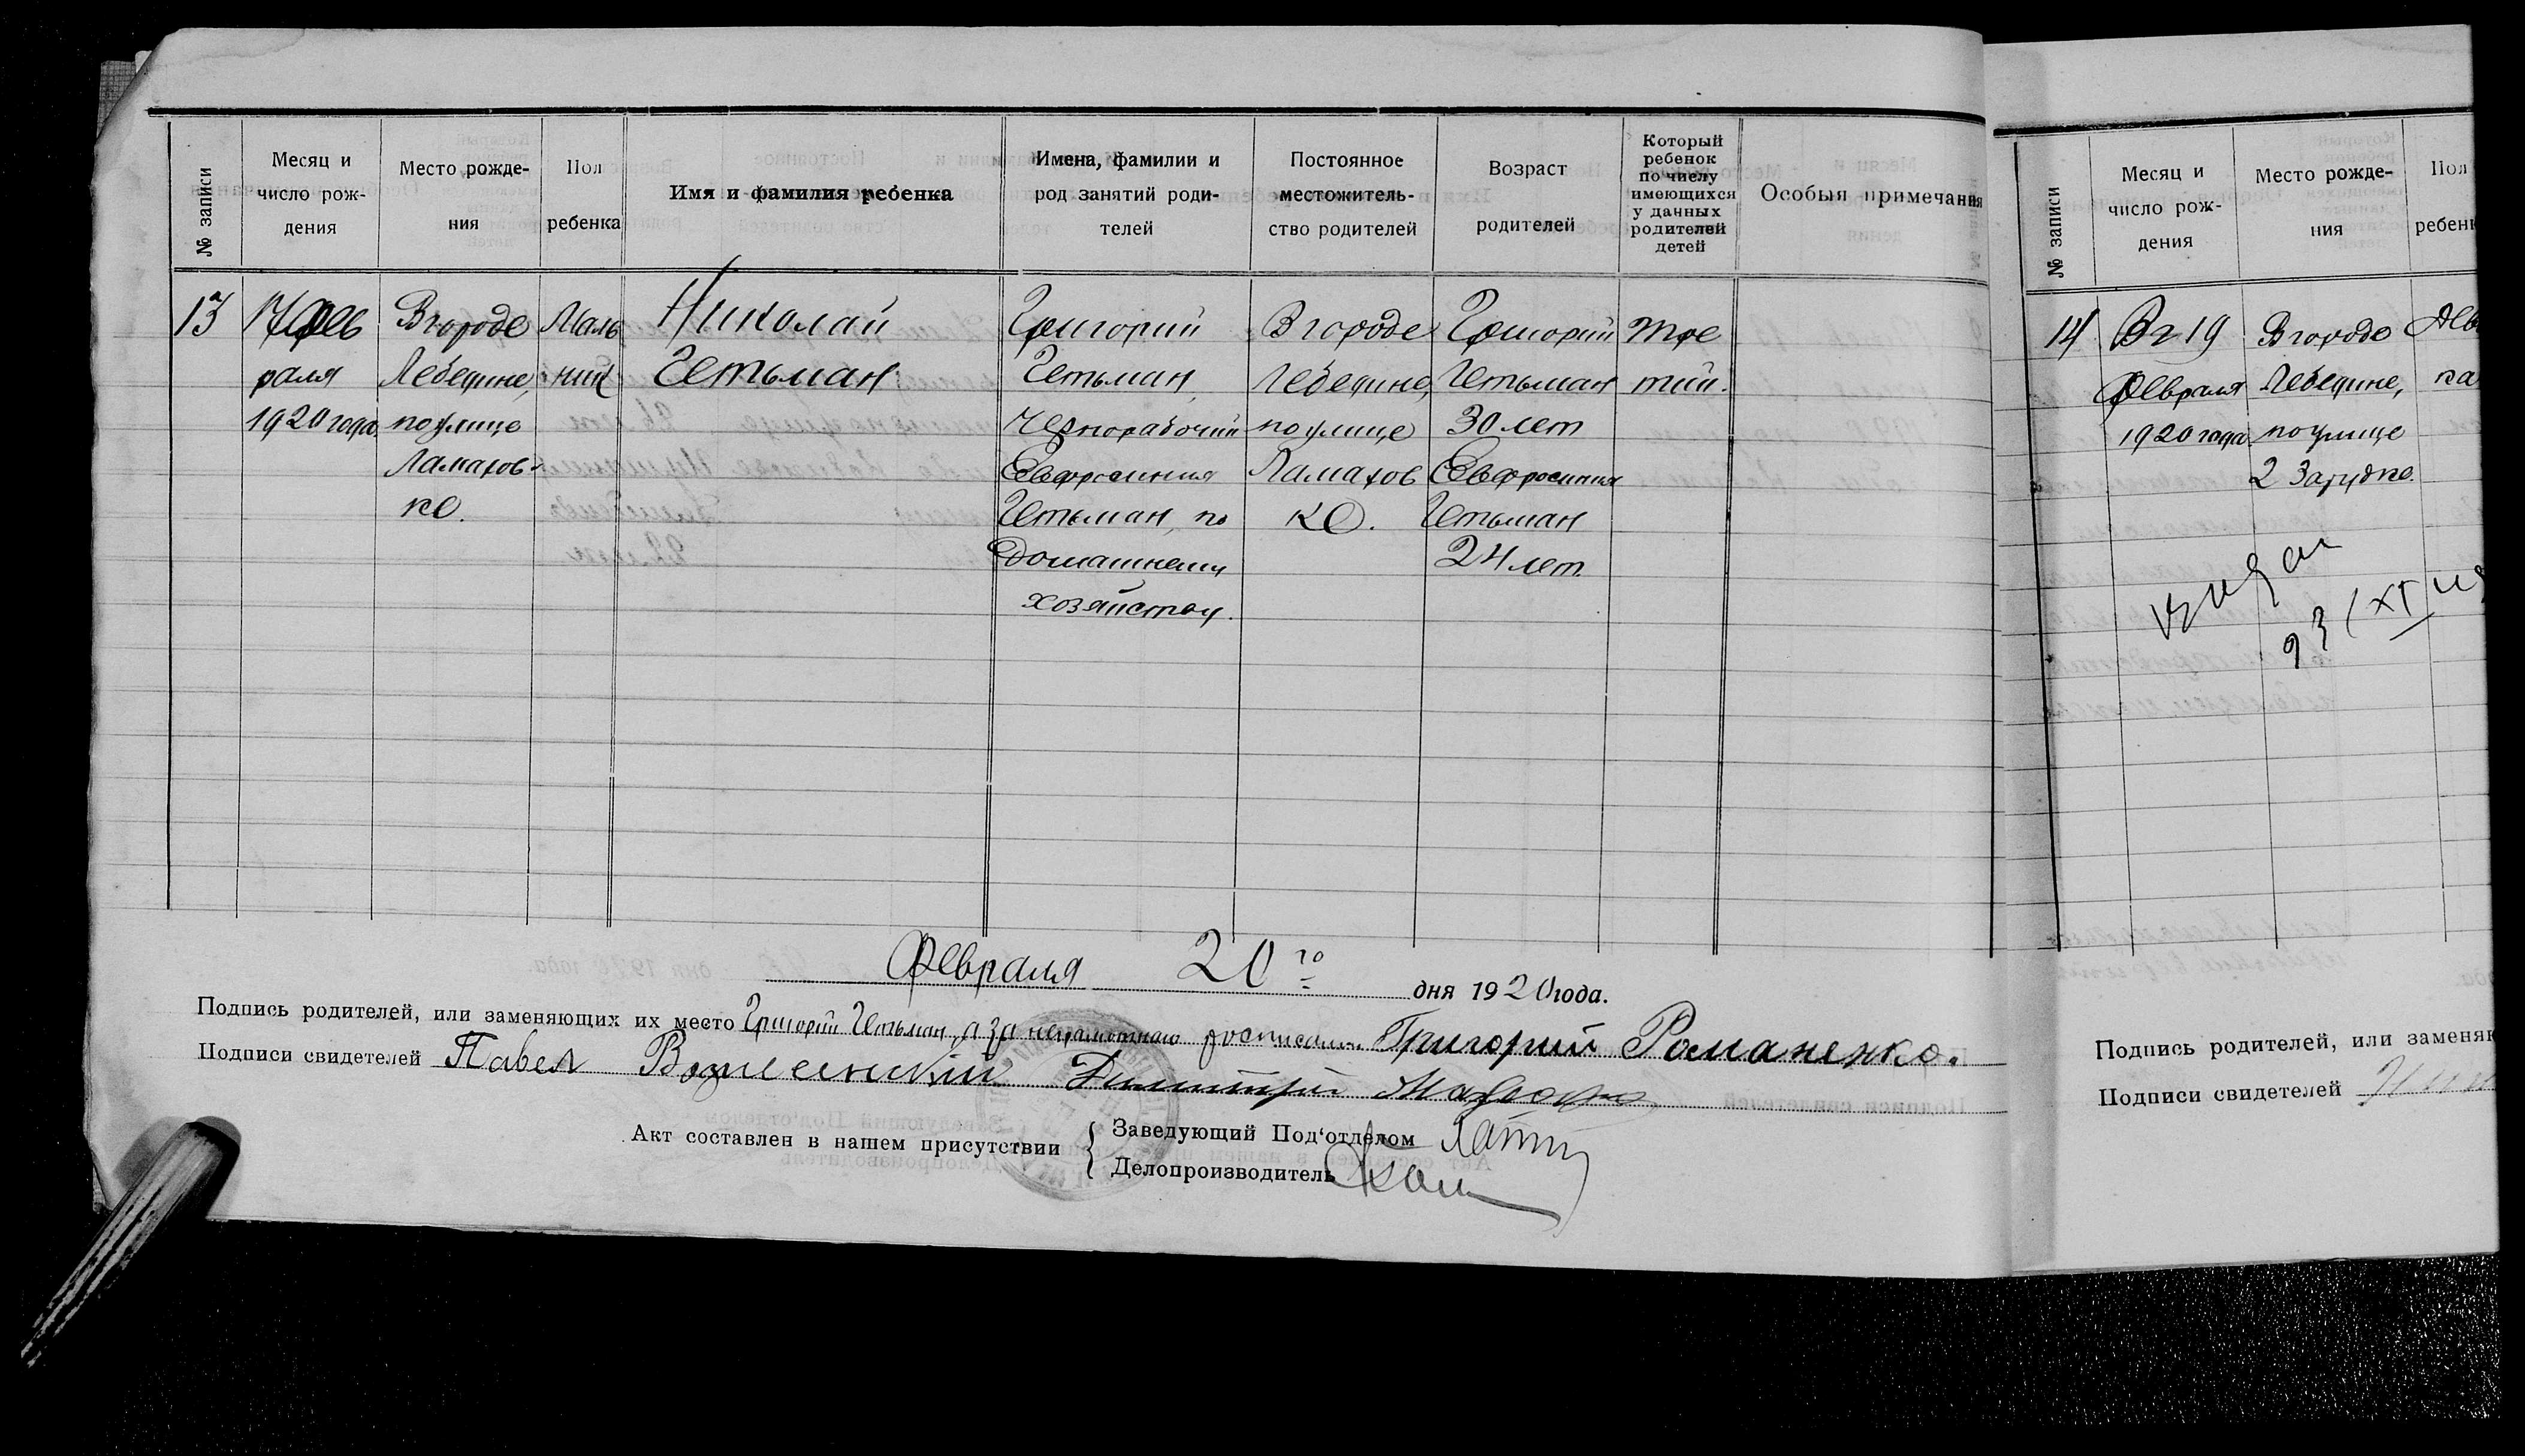 № записи
Месяц и
число рож-
дения
Место рожде-
ния
Пол
ребенка
Имя и фамилия ребенка
Имена, фамилии и
род занятий роди-
телей
Постоянное
местожитель-
ство родителей
Возраст
родителей
Который
ребенок
по числу
имеющихся
у данных
родителей
детей
Особыя примечания
13
17 Фев
раля
1920 года
В городе
Лебедине,
по улице
Ламахов-
ке.
Маль
чик
Николай
Гетьман
Григорий
Гетьман,
Чернорабочий
Евфросиния
Гетьман, по
домашнему
хозяйству.
В городе
Лебедине,
по улице
Ламахов
ке.
Григорий
Гетьман
30 лет
Евфросиния
Гетьман
24 лет.
тре
тий.
Февраля 20 го дня 1920 года.
Подпись родителей, или заменяющих их место Григорий Гетьман, а за неграмотнаго росписался Григорий Романенко.
Подписи свидетелей Павел Димитрий
Акт составлен в нашем присутствии
Заведующий Под'отделом
Делопроизводитель
№ записи
Месяц и
число рож-
дения
Место рожде-
ния
Пол
ребенк
14
19
Февраля
1920 года
В городе
Лебедине,
по улице
2 Зарудке.
Дев
ка
Подпись родителей, или заменяю
Подписи свидетелей